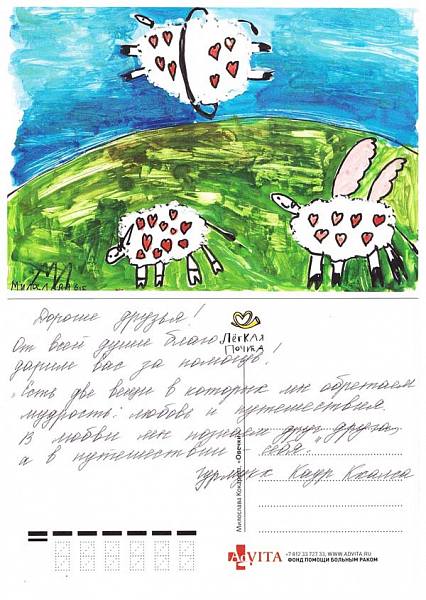 МИЛОСЛАВА 6 л.
Дорогие друзья!
От всей души благо
дарим вас за помощь!
ЛЁГКАЯ
ПОЧТА
„Есть две вещи в которых мы обретаем
мудрость: любовь и путешествия.
В любви мы познаем друг друга,
а в путешествии себя."
Гурмукх Каур Кхалса
«Овечки»
ADVITA
+7 812 33 727 33, WWW.ADVITA.RU
ФОНД ПОМОЩИ БОЛЬНЫМ РАКОМ